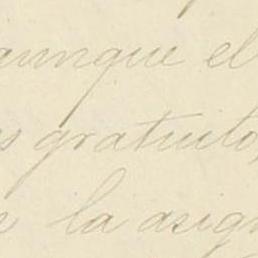 aunque el
s gratuito,
la asign